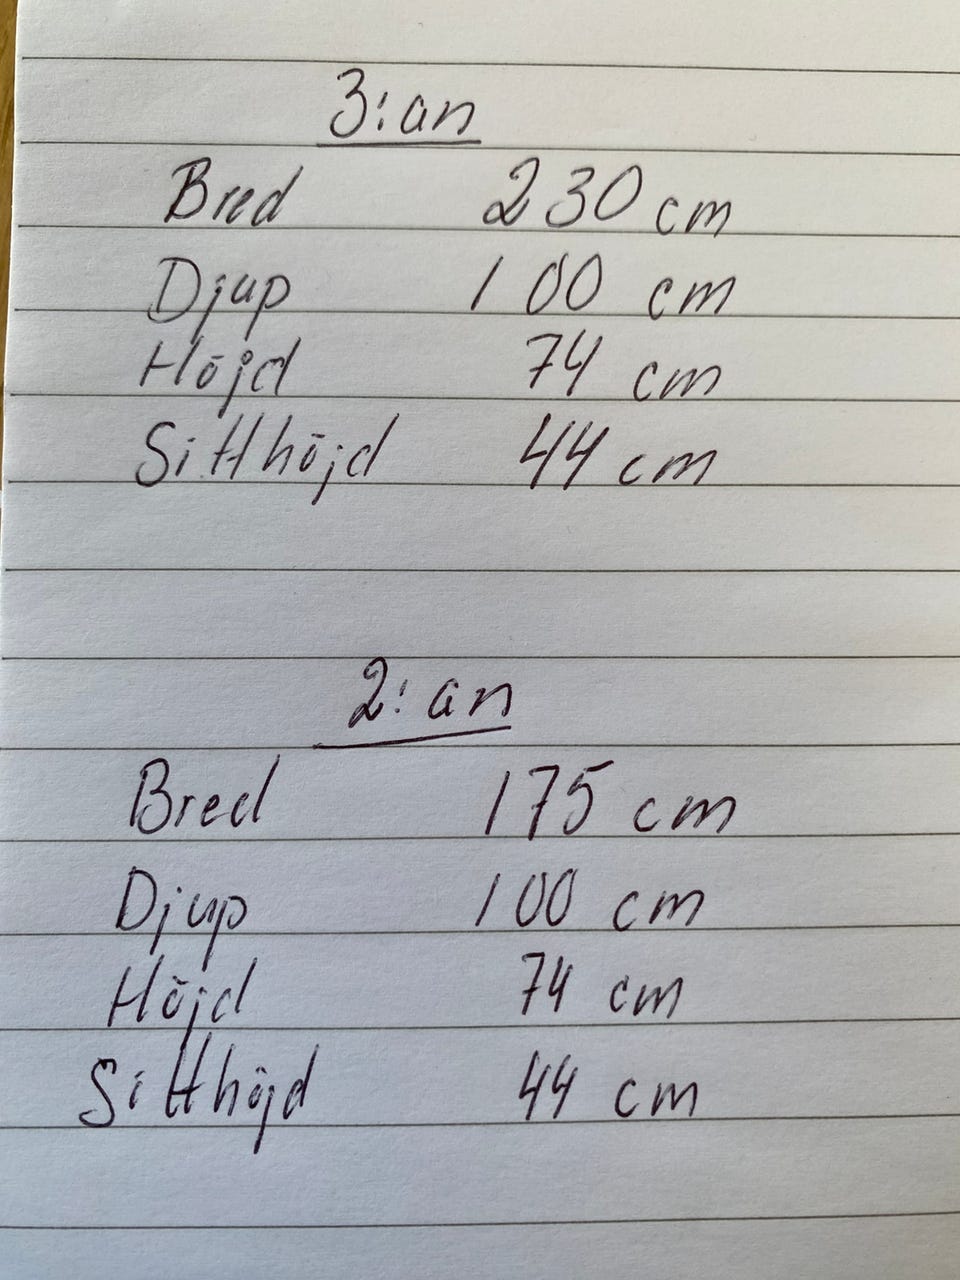 3:an
Bred 230 cm
Djup 100 cm
Höjd 74 cm
Sitthöjd 44 cm
2:an
Bred 175 cm
Djup 100 cm
Höjd 74 cm
Sitthöjd 44 cm